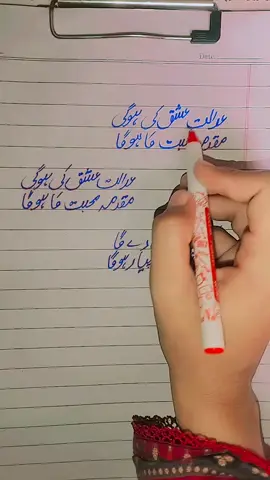 عدالت عشق کی ہوگی
مقدمہ محبت کا ہوگا
عدالت عشق کی ہوگی
مقدمہ محبت کا ہوگا
دے گا
ہوگا